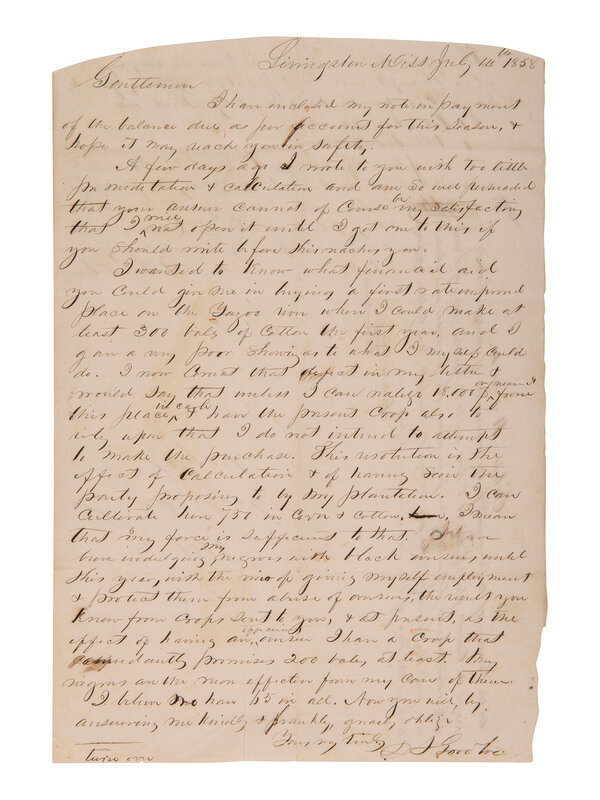 Livingston Miss July 14th 1858
Gentlemen
I have enclosed my note in payment
of the balance due, as per account for this season, &
hope it may reach you in safety,
A few days ago I wrote to you with too little
premeditation & calculation and am so well persuaded
that your answer cannot of course be very satisfactory
that I will not open it until I get one to this if
you should write before this reaches you.
I wanted to know what financial aid
you could give me in buying a first rate improved
place on the Yazoo River where I could make at
least 300 bales of Cotton the first year, and I
gave a very poor showing as to what I myself could
do. I now correct that defect in my letter &
would say that unless I can realize 18.000 for
this place in cash & have the present Crop also to
rely upon that I do not intend to attempt
to make the purchase. This resolution is the
effect of Calculation & of having seen the
party proposing to by my plantation. I can
cultivate here 750 in Corn & Cotton, I mean
that my force is sufficient to that. I have
been indulging my negroes with black drivers until
this year, with the view of giving myself employment
& protect them from abuse of overseers, the result you
know from Crops sent to you, & at present, as the
effect of having an overseer I have a Crop that
promises 200 bales at least. My
negroes are the more effective from my care of them.
I have 65 in all. Now you will, by
answering me kindly & frankly, oblige
Yours very truly J Goodloe
turn over